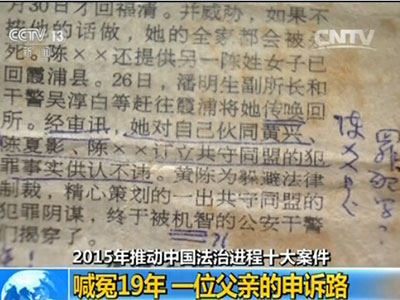 CCTV 13
新闻
CNTV
月30日才回福清。并威胁，如果不
按他的话做，她的全家都会被
死。陈××还提供另一陈姓女子已
回霞浦县。26日，潘明生副所长和
干警吴淳白等赶往霞浦将她传唤回
所。经审讯，她对自己伙同黄兴、
陈夏影、陈××订立共守同盟的犯
罪事实供认不违。黄陈为躲避法律
制裁，精心策划的一出共守同盟的
犯罪阴谋，终于被机智的公安干警
们揭穿了。
2015年推动中国法治进程十大案件
喊冤19年 一位父亲的申诉路